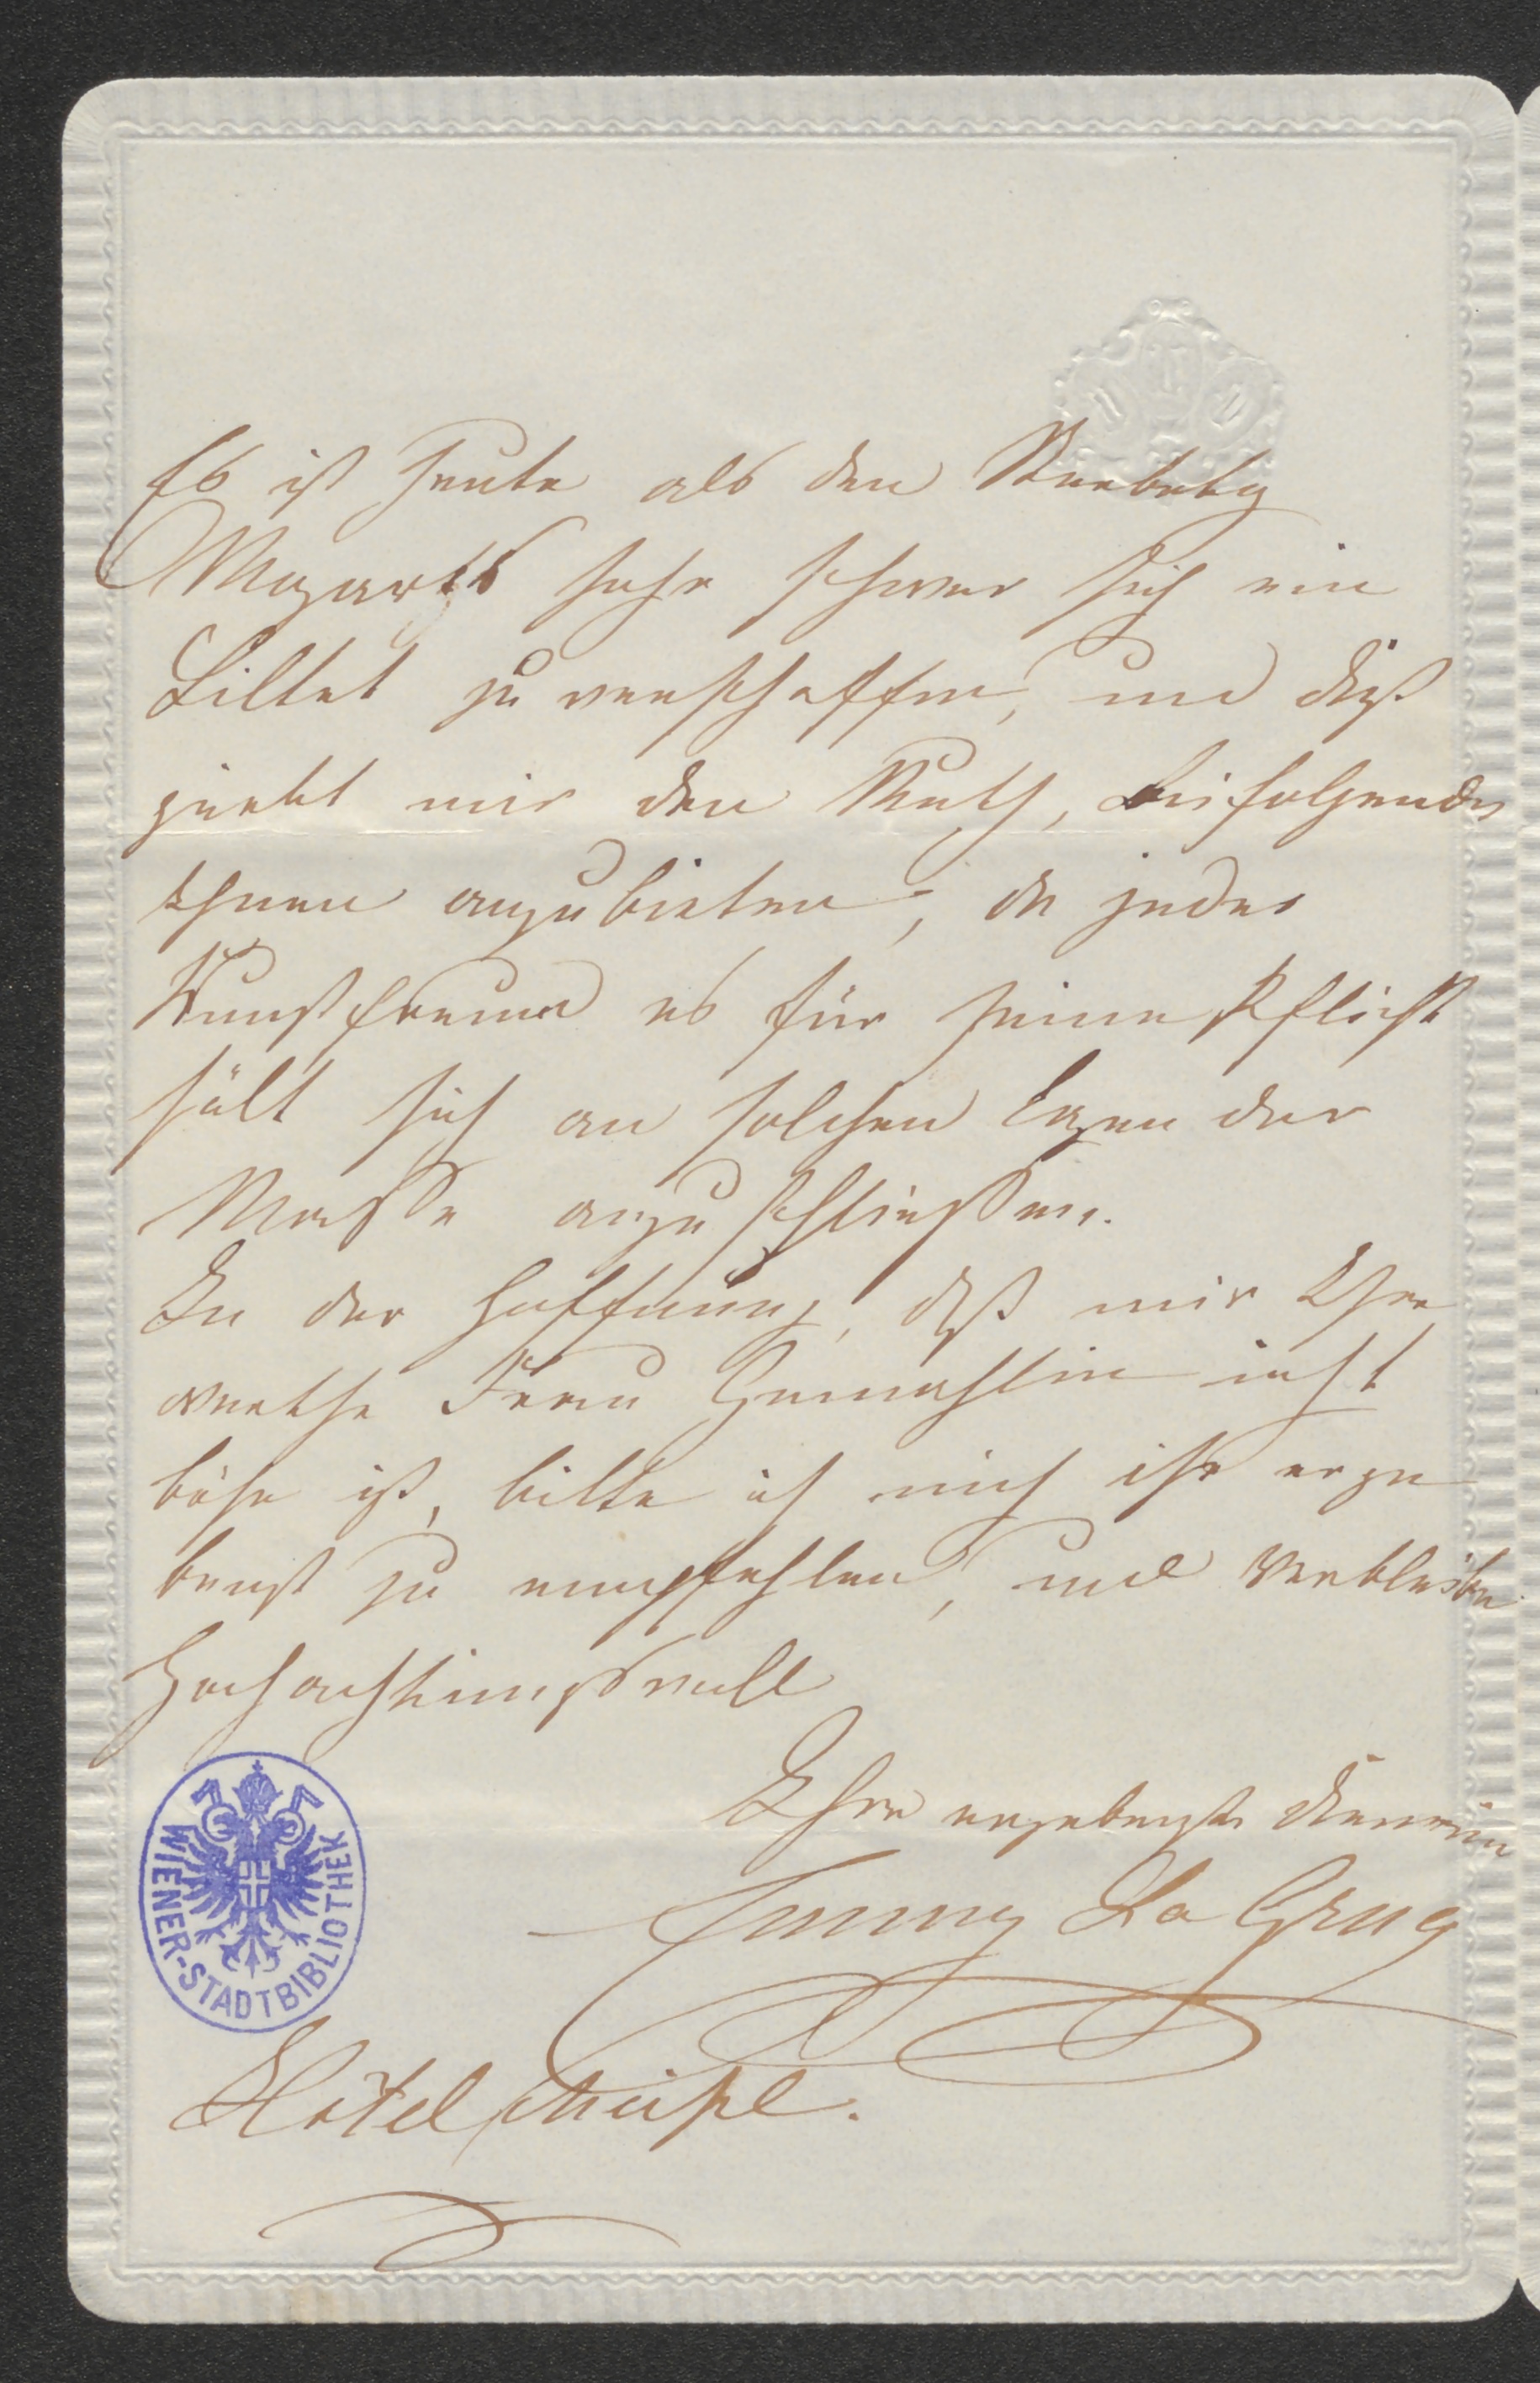 Es ist heute als den Sterbetag
Mozarts sehr schwer sich ein
Billet zu verschaffen, und dieß
giebt mir den Muth, beifolgendes
Ihnen anzubieten, da jeder
Kunstfreund es für seine Pflicht
hält sich an solchen Tagen der
Masse anzuschließen.
In der Hoffnung, daß mir Ihre
werthe Frau Gemahlin nicht
böse ist, bitte ich mich ihr erge
benst zu empfehlen, und verbleibe
Hochachtungsvoll
Ihre ergebenste Dienerin
Emmy La Grua
WIENER-STADTBIBLIOTHEK
Hôtel Meißl.